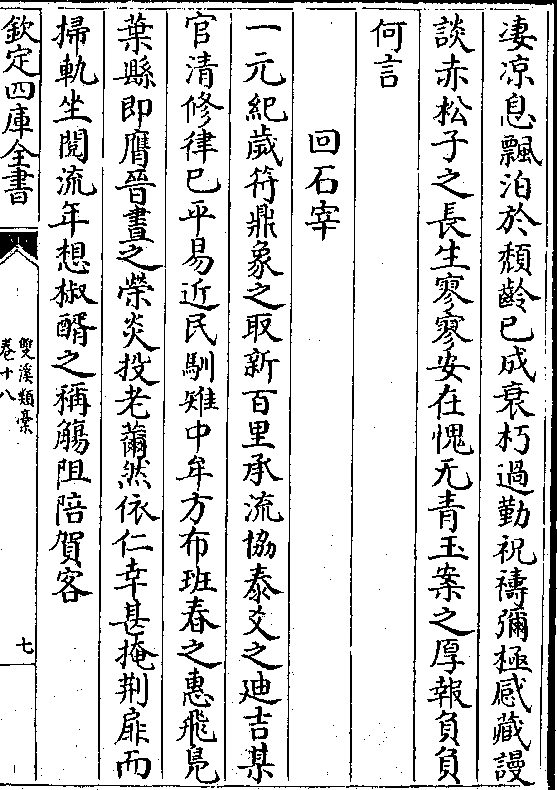 凄凉息飄泊於頽齡已成衰朽過勤祝禱彌極感藏謾
談赤松子之長生寥寥安在愧无青玉案之厚報負負
何言
回石宰
一元紀歲符鼎象之取新百里承流協泰爻之廸吉某
官清修律已平易近民馴雉中牟方布班春之惠飛鳬
葉縣即膺晉晝之榮炎投老薾然依仁幸甚掩荆扉而
掃軌坐閲流年想椒醑之稱觴阻陪賀客
欽定四庫全書
雙溪類藁
卷十八
七